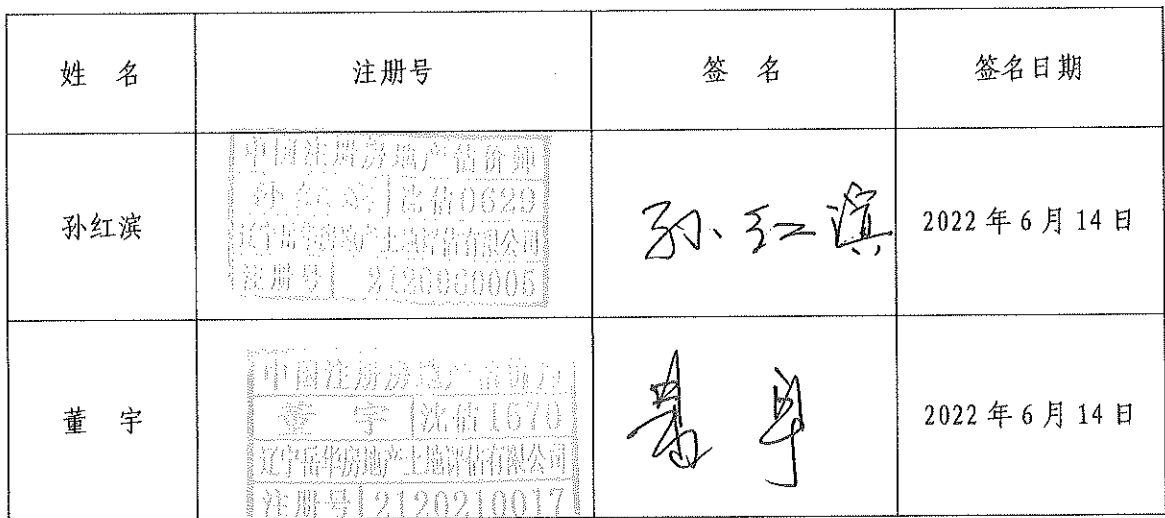 姓 名 注册号 签 名 签名日期
孙红滨
中国注册房地产估价师
孙红滨 沈估0629
辽宁岳华房地产土地评估有限公司
注册号 2120060006
孙红滨
2022 年 6 月 14 日
董 宇
中国注册房地产估价师
董 宇 沈估1570
辽宁岳华房地产土地评估有限公司
注册号 2120210017
董宇
2022 年 6 月 14 日